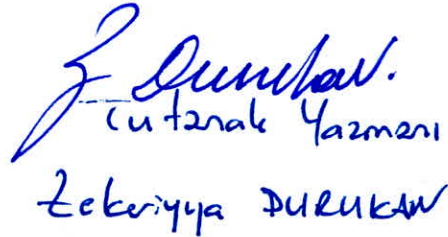 Z. Durukan.
Tutanak Yazmanı
Zekeriyya DURUKAN